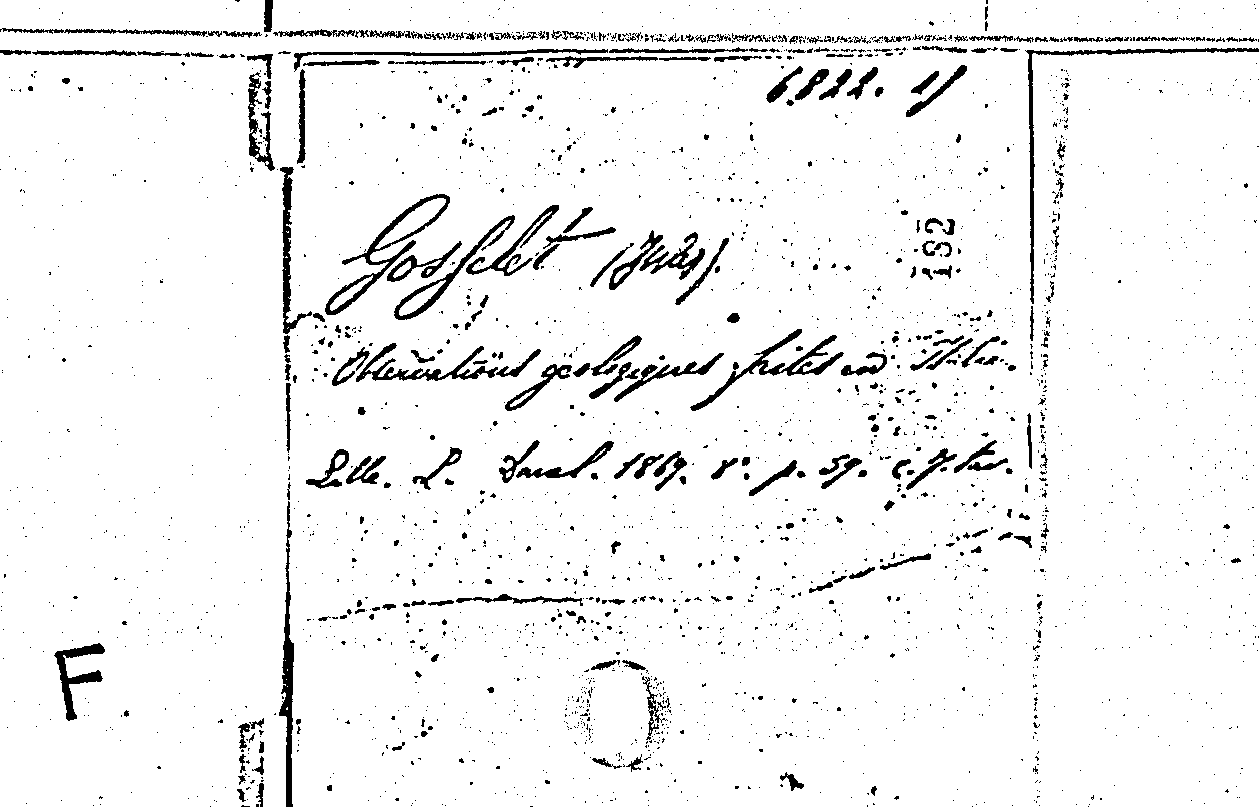 6822. 1)
Gosselet (Jules).
182
Observations géologiques faites en Italie.
Lille. L. Danel. 1869. 8°. p. 59. c. 7. tav.
F